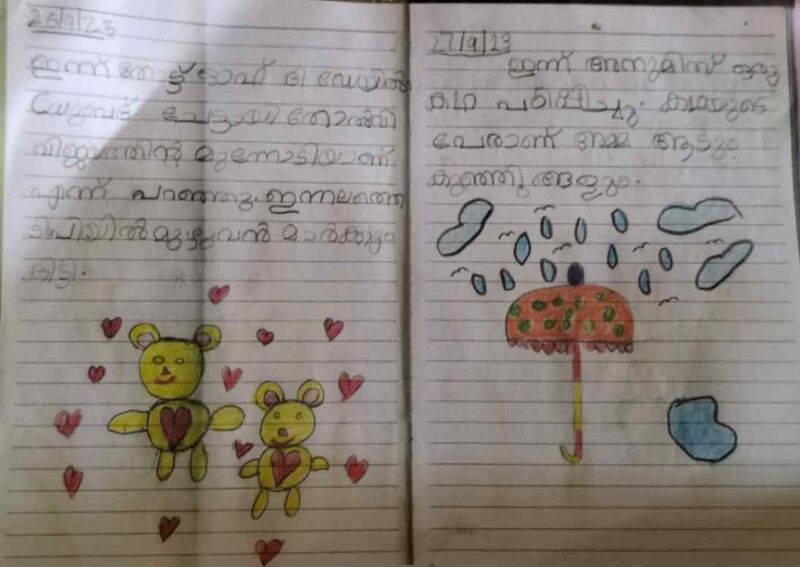 26/9/23
ഇന്ന് തോട്ട് ഓഫ് ദി ഡേയിൽ
ധ്രുബദ് ചേട്ടായി തോൽവി
വിജയത്തിന്റെ മുന്നോടിയാണ്.
എന്ന് പറഞ്ഞു. ഇന്നലത്തെ
ടിപിയിൽ മുഴുവൻ മാർക്കും
കിട്ടി.
27/9/23
ഇന്ന് അനുമിസ് ഒരു
കഥ പഠിപ്പിച്ചു. കഥയുടെ
പേരാണ് അമ്മ ആടും
കുഞ്ഞുങ്ങളും.